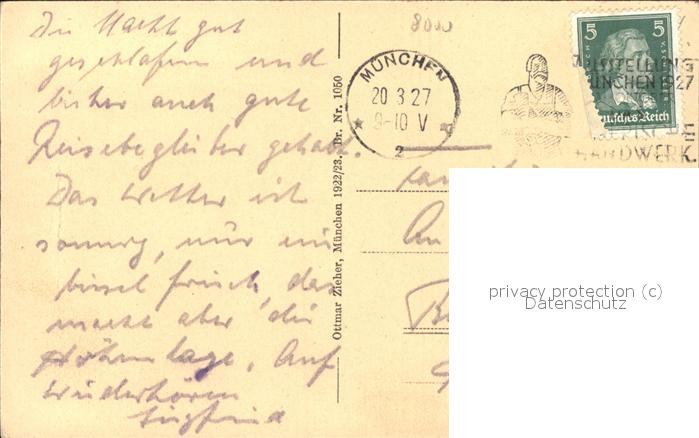 Die Nacht gut
geschlafen und
bisher auch gute
Reisebegleiter gehabt.
Das Wetter ist
sonnig, nur ein
bissel frisch, das
macht aber die
Höhenlage. Auf
Wiederhören
Siegfried
Ottmar Zieher, München 1922/23. Br. Nr. 1050
8000
MÜNCHEN
20 3 27
9-10 V
2
5
5
Deutsches Reich
AUSSTELLUNG
MÜNCHEN 1927
HANDWERK
An
privacy protection (c)
Datenschutz